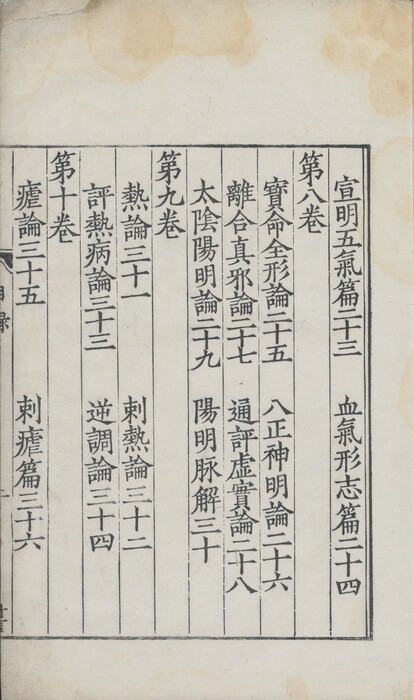 宣明五氣篇二十三　血氣形志篇二十四
第八卷
寶命全形論二十五　八正神明論二十六
離合真邪論二十七　通評虛實論二十八
太陰陽明論二十九　陽明脉解三十
第九卷
熱論三十一　刺熱論三十二
評熱病論三十三　逆調論三十四
第十卷
瘧論三十五　刺瘧篇三十六